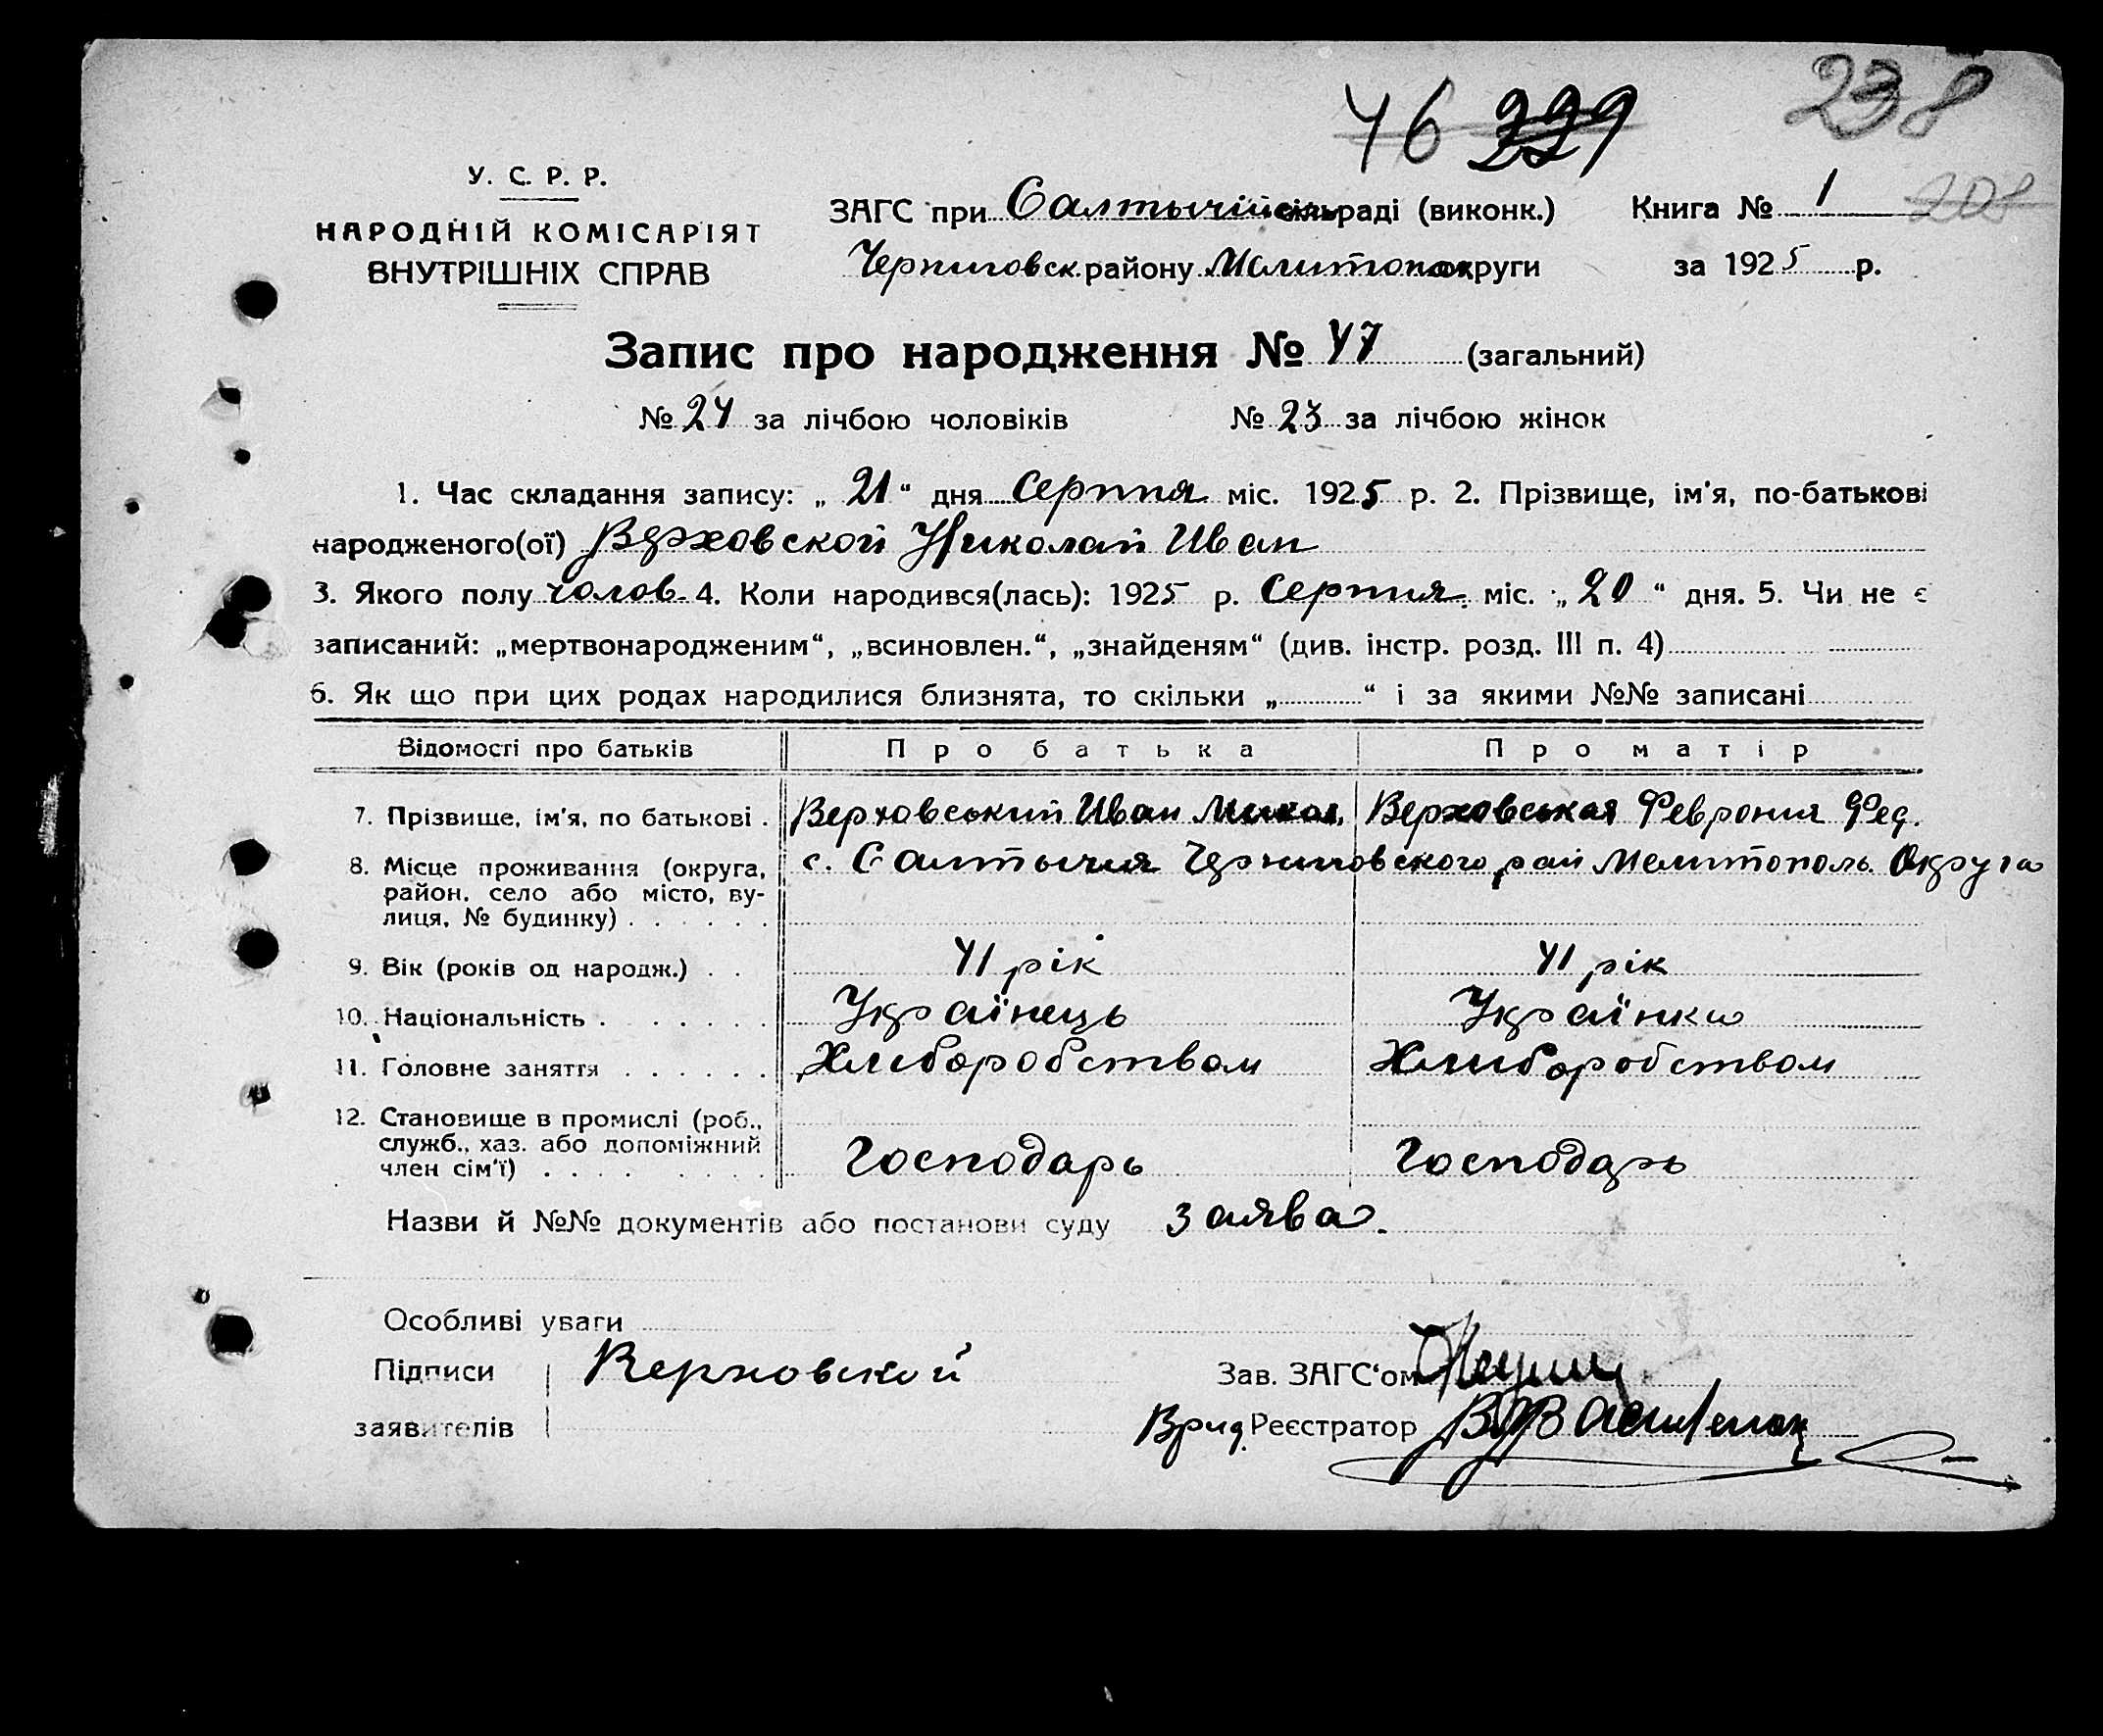 46 229 238
У. С. Р. Р.
НАРОДНІЙ КОМІСАРІЯТ
ВНУТРІШНІХ СПРАВ
ЗАГС при Салтичій сільраді (виконк.) Книга № 1 208
Черниговск. району Мелитоп округи за 1925 р.
Запис про народження № 47 (загальний)
№ 24 за лічбою чоловіків № 23 за лічбою жінок
1. Час складання запису: „ 21 “ дня Серпня міс. 1925 р. 2. Прізвище, ім'я, по-батькові
народженого(ої) Верховской Николай Иван
3. Якого полу чолов. 4. Коли народився(лась): 1925 р. Серпня міс. „ 20 “ дня. 5. Чи не є
записаний: „мертвонародженим“, „всиновлен.“, „знайденям“ (див. інстр. розд. III п. 4)
6. Як що при цих родах народилися близнята, то скільки „ “ і за якими №№ записані
Відомості про батьків Про батька Про матір
7. Прізвище, ім'я, по батькові . Верховський Иван Микол. Верховськая Феврония Фед.
8. Місце проживання (округа, с. Салтычия Черниговского рай Мелитополь. Округа
район, село або місто, ву-
лиця, № будинку) . . . . . .
9. Вік (років од народж.) . . 41 рік 41 рік
10. Національність . . . . . . Українець Українка
11. Головне заняття . . . . . . Хлиборобством Хлиборобством
12. Становище в промислі (роб.,
служб., хаз. або допоміжний
член сім'ї) . . . . . . . . Господарь Господарь
Назви й №№ документів або постанови суду заява.
Особливі уваги
Підписи Верховской Зав. ЗАГС'ом
заявителів Врид. Реєстратор